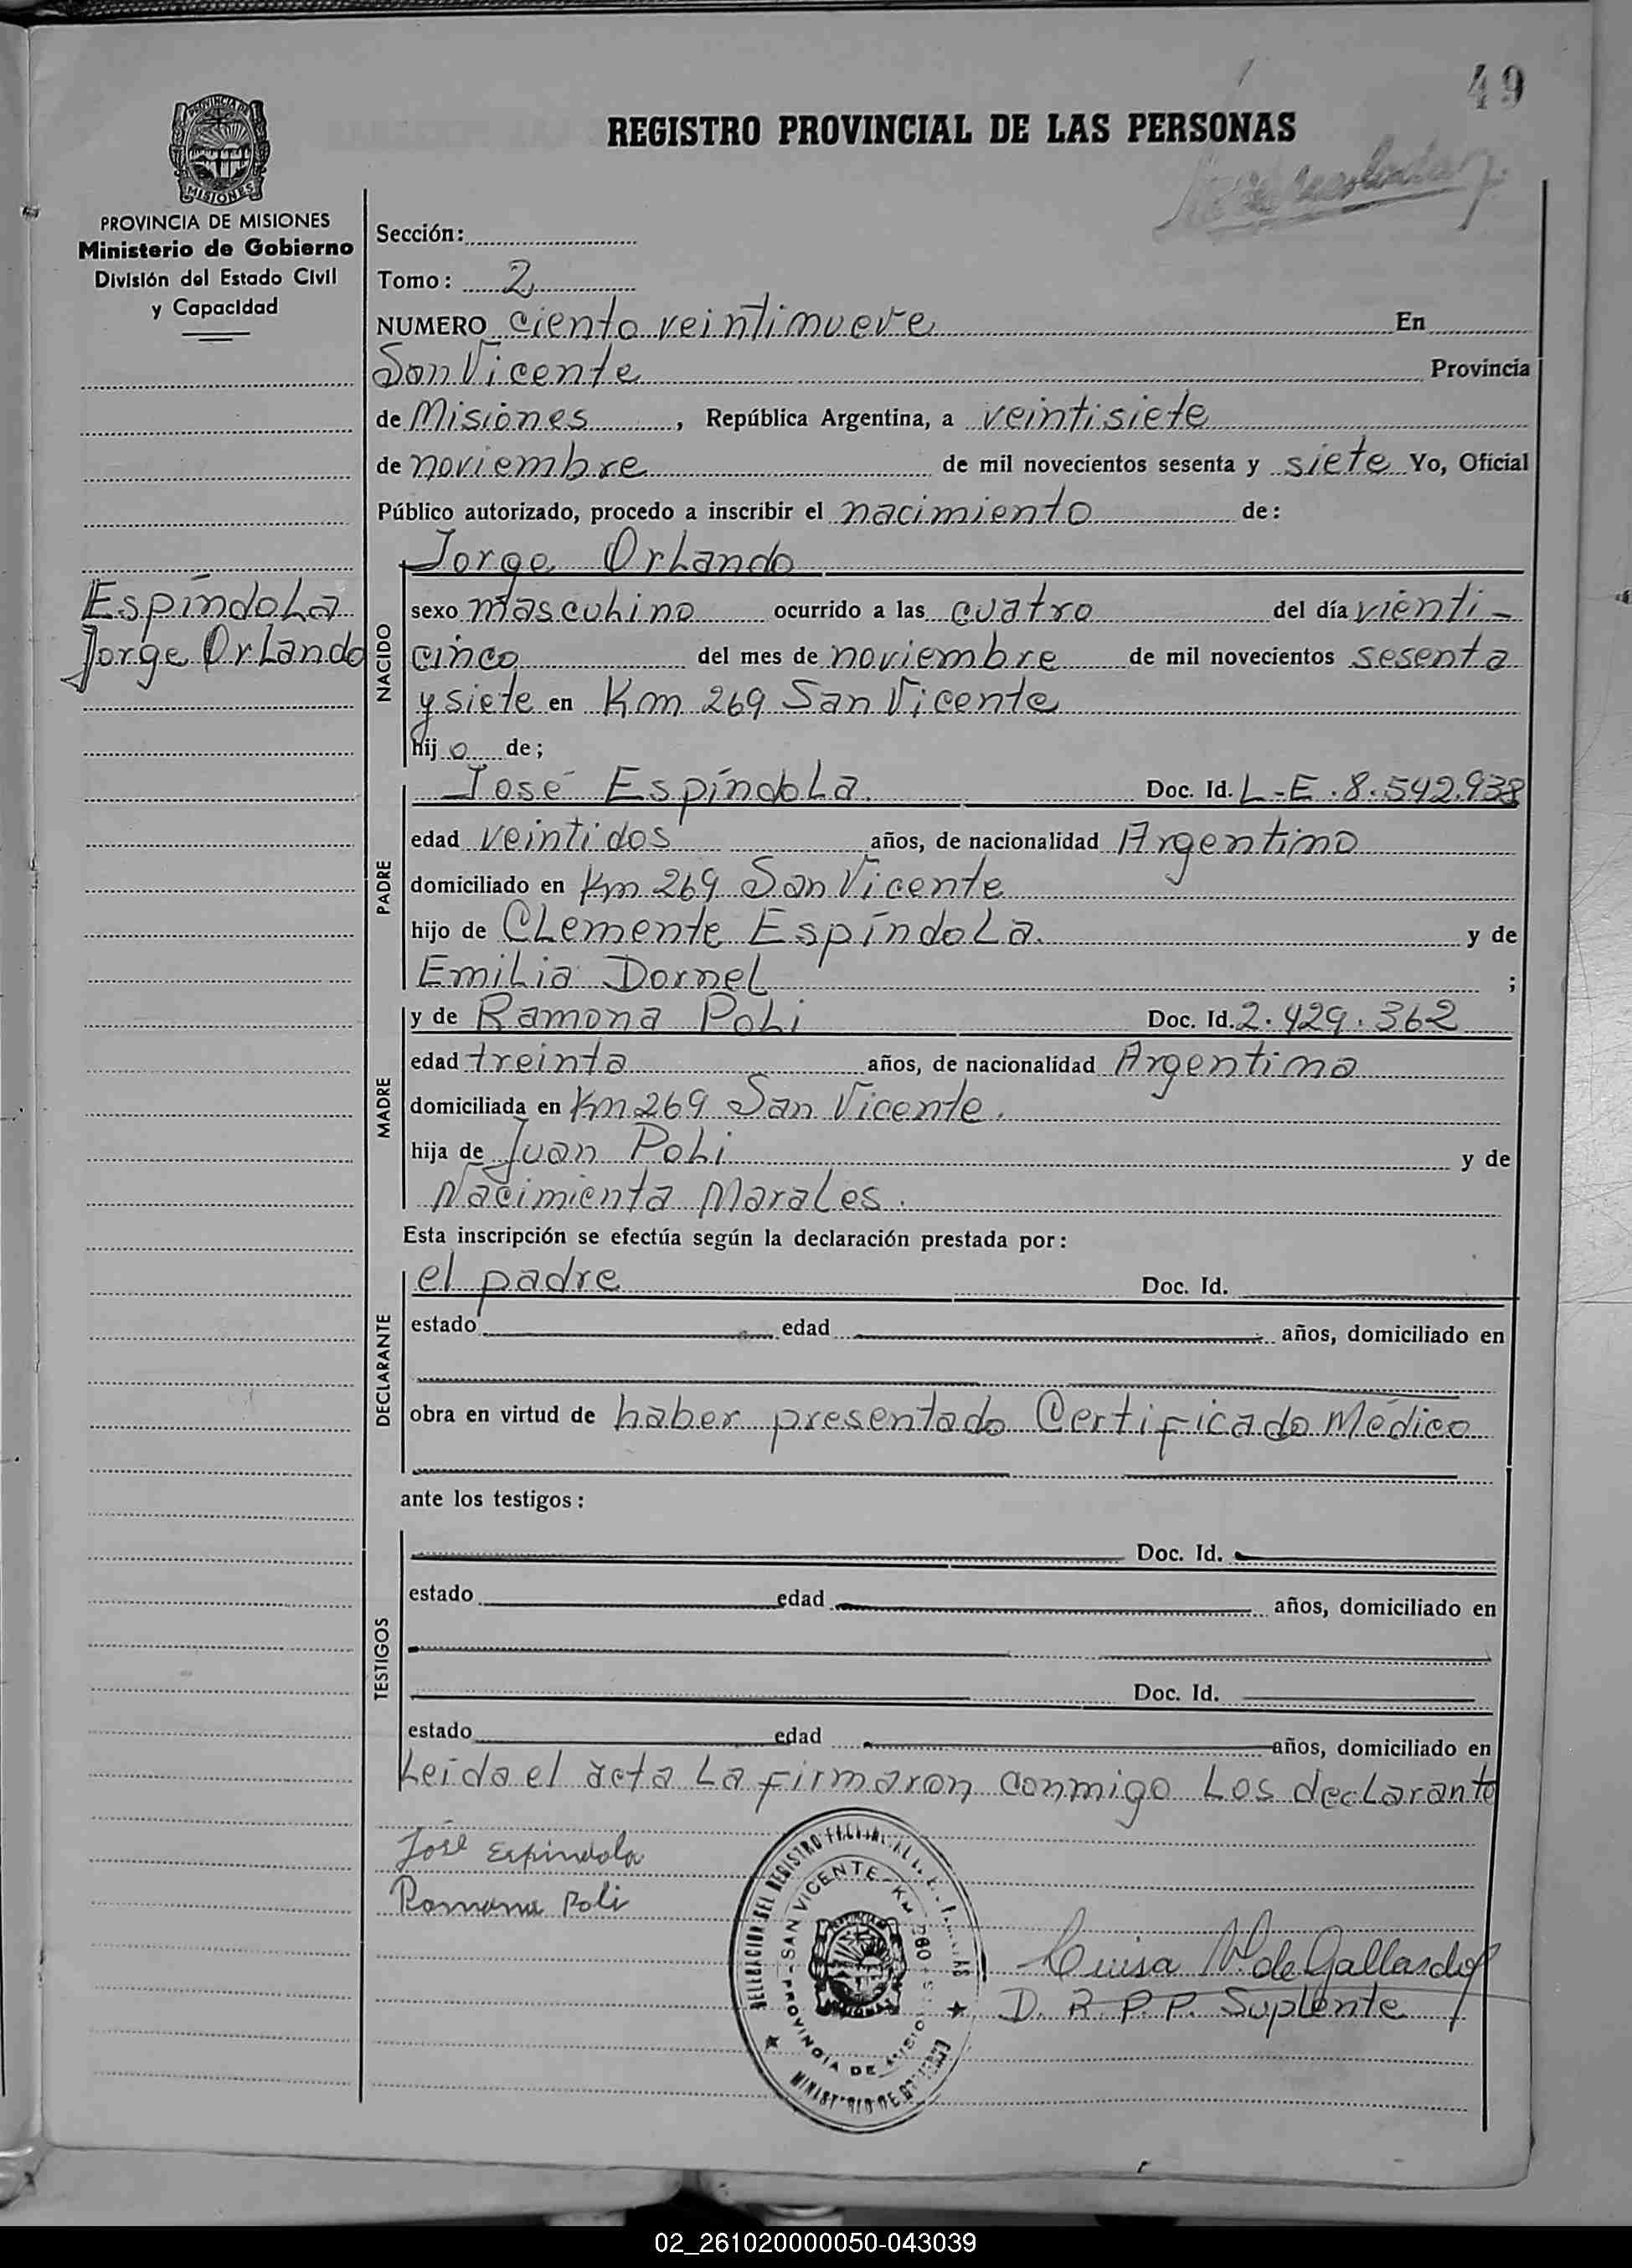 49
REGISTRO PROVINCIAL DE LAS PERSONAS
PROVINCIA DE
MISIONES
PROVINCIA DE MISIONES
Ministerio de Gobierno
División del Estado Civil
y Capacidad
Espíndola
Jorge Orlando
Sección:
Tomo: 2
NUMERO ciento veintinueve En
San Vicente Provincia
de Misiones, República Argentina, a veintisiete
de noviembre de mil novecientos sesenta y siete Yo, Oficial
Público autorizado, procedo a inscribir el nacimiento de:
NACIDO
Jorge Orlando
sexo masculino ocurrido a las cuatro del día vienti-
cinco del mes de noviembre de mil novecientos sesenta
y siete en Km 269 San Vicente
hijo de;
PADRE
José Espíndola. Doc. Id. L-E.8.542.938
edad veintidos años, de nacionalidad Argentino
domiciliado en Km 269 San Vicente
hijo de Clemente Espíndola. y de
Emilia Dornel ;
MADRE
y de Ramona Poli Doc. Id. 2.429.362
edad treinta años, de nacionalidad Argentina
domiciliada en Km 269 San Vicente.
hija de Juan Poli y de
Nacimienta Morales.
Esta inscripción se efectúa según la declaración prestada por:
DECLARANTE
el padre Doc. Id.
estado edad años, domiciliado en
obra en virtud de haber presentado Certificado Médico
ante los testigos:
TESTIGOS
Doc. Id.
estado edad años, domiciliado en
Doc. Id.
estado edad años, domiciliado en
Leida el acta la firmaron conmigo los declarante
José Espindola
Ramona Poli
DELEGACION DEL REGISTRO
SAN VICENTE - KM
PROVINCIA DE MISIONES
MINISTERIO DE GOBIERNO
Luisa N. de Gallardo
D. R. P. P. Suplente
02_261020000050-043039